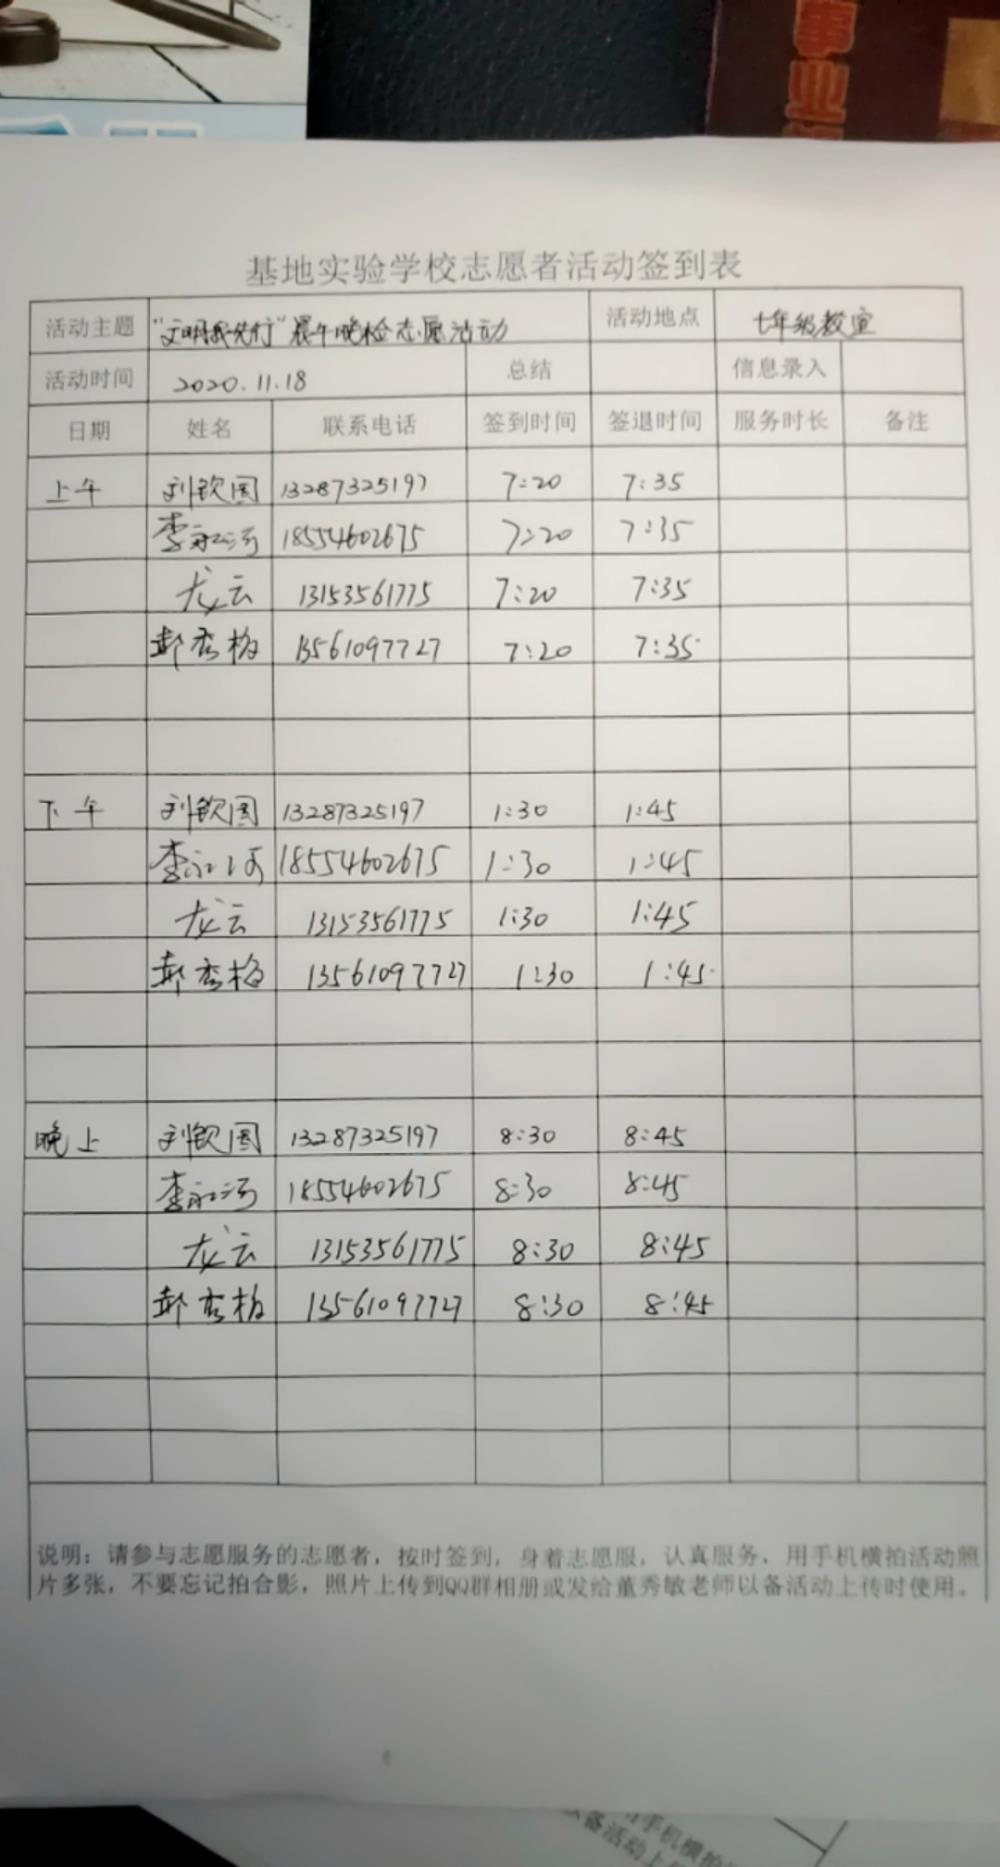 事业
基地实验学校志愿者活动签到表
活动主题 "文明我先行"晨午晚检志愿活动 活动地点 七年级教室
活动时间 2020.11.18 总结 信息录入
日期 姓名 联系电话 签到时间 签退时间 服务时长 备注
上午 刘钦国 13287325197 7:20 7:35
李永河 18554602675 7:20 7:35
龙云 13153561775 7:20 7:35
郝秀梅 13561097727 7:20 7:35
下午 刘钦国 13287325197 1:30 1:45
李永河 18554602675 1:30 1:45
龙云 13153561775 1:30 1:45
郝秀梅 13561097727 1:30 1:45
晚上 刘钦国 13287325197 8:30 8:45
李永河 18554602675 8:30 8:45
龙云 13153561775 8:30 8:45
郝秀梅 13561097727 8:30 8:45
说明：请参与志愿服务的志愿者，按时签到，身着志愿服，认真服务，用手机横拍活动照
片多张，不要忘记拍合影，照片上传到QQ群相册或发给董秀敏老师以备活动上传时使用。
手机横拍
以备活动上